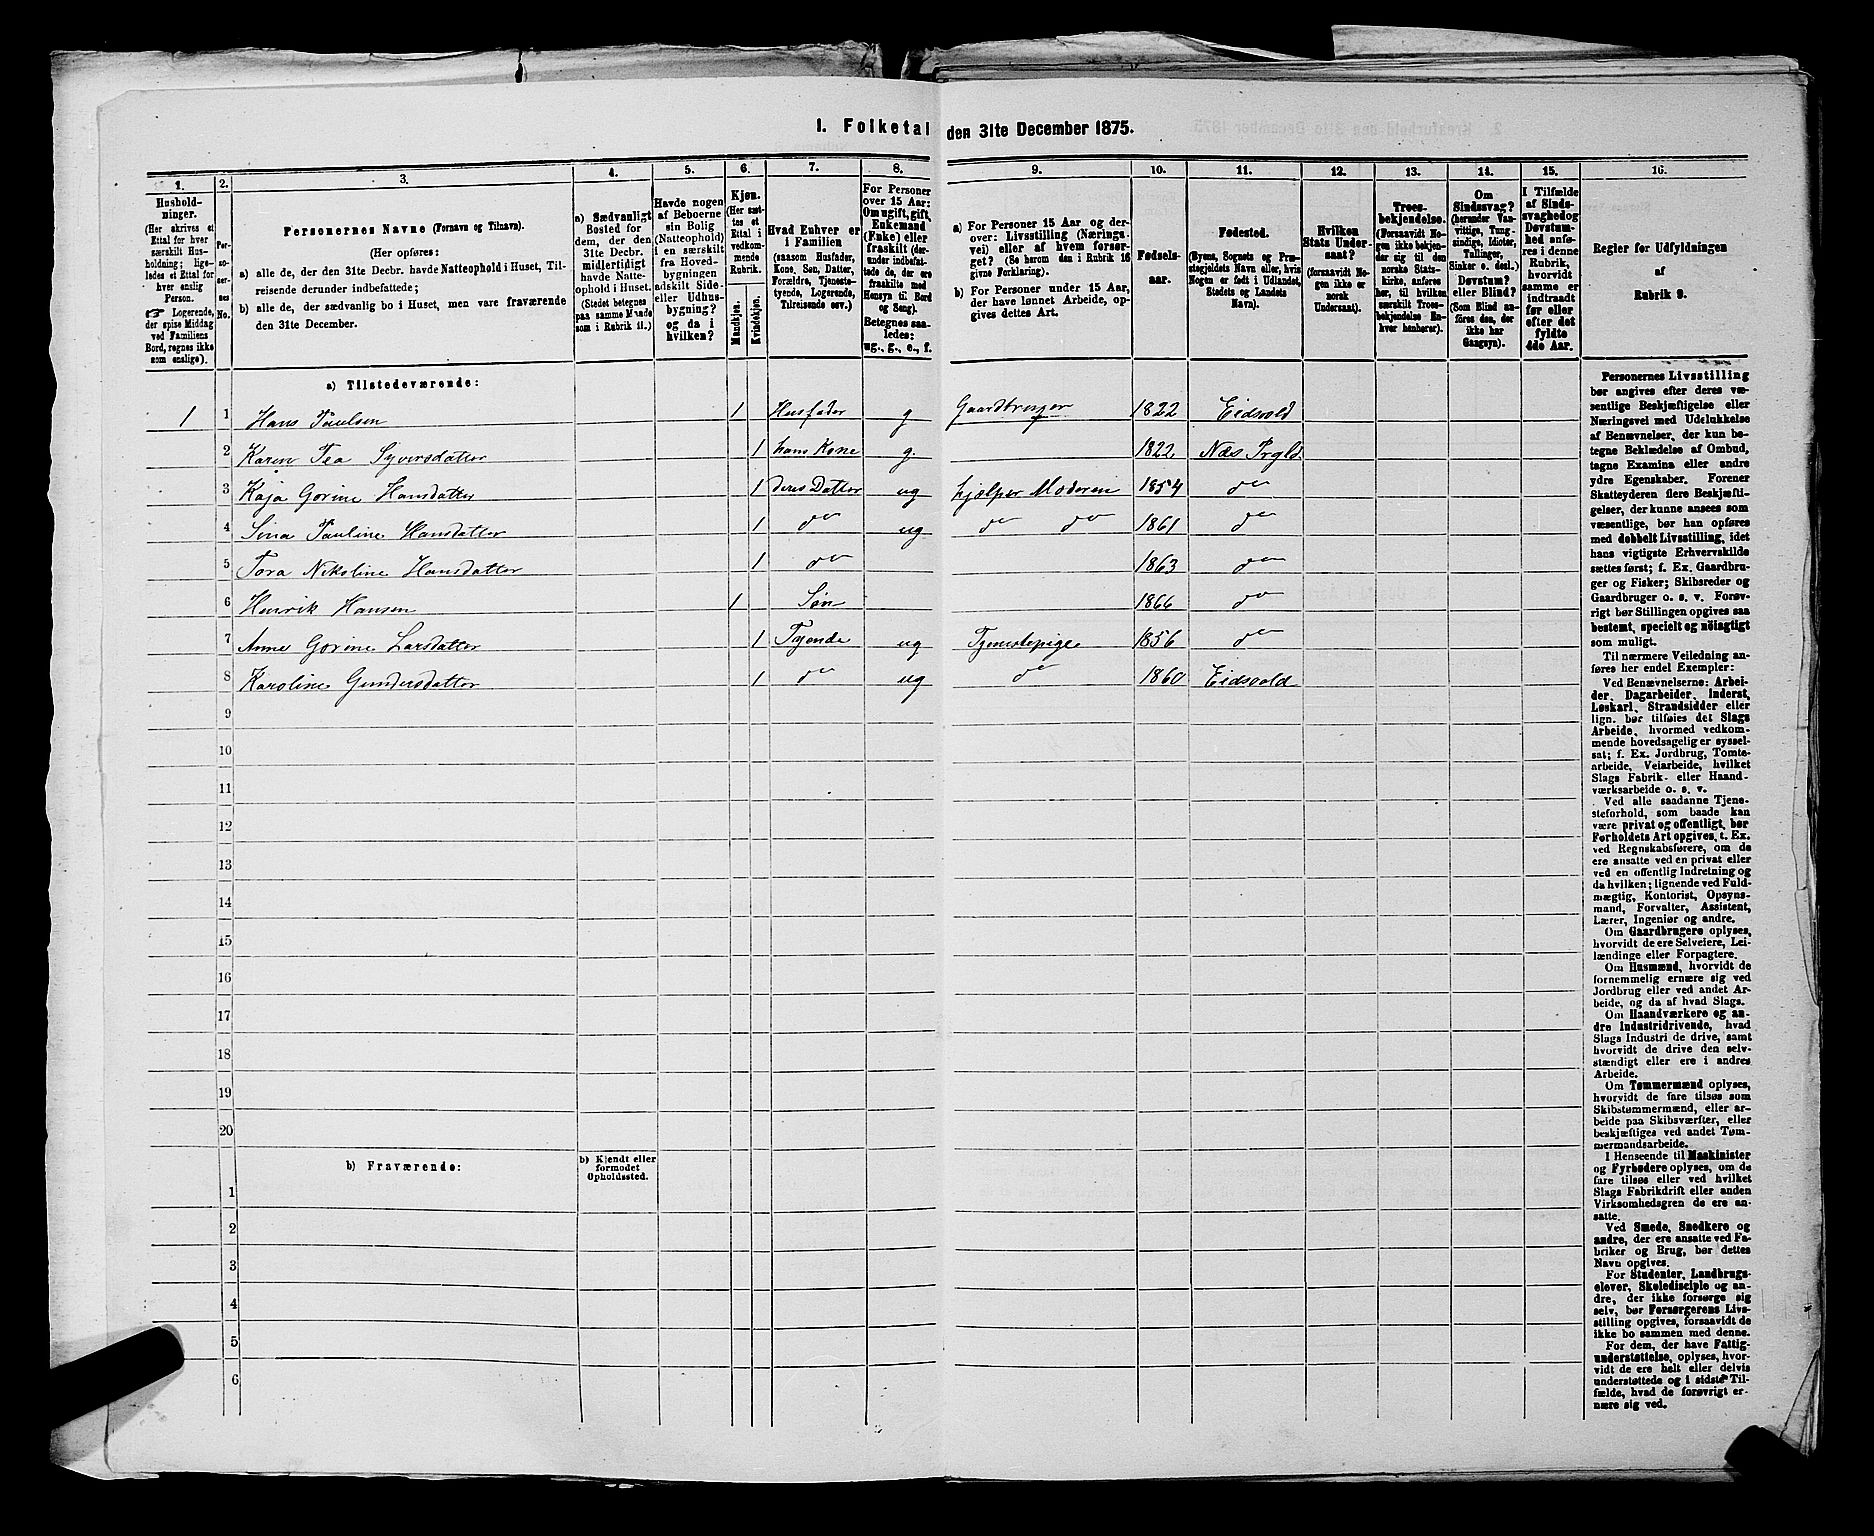 1. Folketal den 31te December 1875.
1. 2. 3. 4. 5. 6. 7. 8. 9. 10. 11. 12. 13. 14. 15. 16.
Husholdninger.
(Her skrives et
Ettal for hver
særskilt Husholdning;
ligeledes et Ettal for
hver enslig
Person.
☞ Logerende,
der spise Middag
ved Familiens
Bord, regnes ikke
som enslige).
Personernes No.
Personernes Navne (Fornavn og Tilnavn).
(Her opføres:
a) alle de, der den 31te Decbr. havde Natteophold i Huset, Tilreisende derunder indbefattede;
b) alle de, der sædvanlig bo i Huset, men vare fraværende
den 31te December.
a) Sædvanligt
Bosted for
dem, der den
31te Decbr.
midlertidigt
havde Natteophold i Huset.
(Stedet betegnes
paa samme Maade
som i Rubrik 11.)
Havde nogen
af Beboerne
sin Bolig
(Natteophold)
i en særskilt
fra Hovedbygningen
adskilt Side-
eller Udhusbygning?
og da i
hvilken?
Kjøn.
(Her sættes et
Ettal i
vedkommende
Rubrik.
Mandkjøn.
Kvindekjøn.
Hvad Enhver er
i Familien
(saasom Husfader,
Kone, Søn, Datter,
Forældre, Tjenestetyende, Logerende,
Tilreisende osv.)
For Personer
over 15 Aar:
Om ugift, gift,
Enkemand
(Enke) eller
fraskilt (derunder indbefattede de, der ere
fraskilte med
Hensyn til Bord
og Seng).
Betegnes saaledes:
ug., g., e., f.
a) For Personer 15 Aar og derover: Livsstilling (Næringsvei) eller af hvem forsørget? (Se herom den i Rubrik 16
givne Forklaring).
b) For Personer under 15 Aar,
der have lønnet Arbeide, opgives dettes Art.
Fødselsaar.
Fødested.
(Byens, Sognets og Præstegjeldets Navn eller, hvis
Nogen er født i Udlandet,
Stedets og Landets
Navn).
Hvilken
Stats Undersaat?
(forsaavidt Nogen ikke er
norsk
Undersaat).
Troesbekjendelse.
(Forsaavidt Nogen ikke bekjender sig til den
norske Statskirke, anføres
her, til hvilken
særskilt Troesbekjendelse Enhver henhører).
Om
Sindssvag?
(herunder Vanvittige, Tungsindige, Idioter,
Tullinger,
Sinker o. desl.)
Døvstum?
eller Blind?
(Som Blind anføres den, der
ikke har
Gangsyn).
I Tilfælde
af Sindssvaghed og
Døvstumhed anføres i denne
Rubrik,
hvorvidt
samme er
indtraadt
før eller
efter det
fyldte
4de Aar.
Regler for Udfyldningen
af
Rubrik 9.
a) Tilstedeværende:
1 1 Hans Paulsen 1 Husfader g Gaardbruger 1822 Eidsvold
2 Karen Tea Syversdatter 1 hans Kone g. 1822 Næs Prgld.
3 Kaja Gorine Hansdatter 1 deres Datter ug hjælper Moderen 1854 do
4 Sina Pauline Hansdatter 1 do ug do do 1861 do
5 Tora Nikoline Hansdatter 1 do 1863 do
6 Henrik Hansen 1 Søn 1866 do
7 Anne Gorine Larsdatter 1 Tyende ug Tjenestepige 1856 do
8 Karoline Gundersdatter 1 do ug do 1860 Eidsvold
9
10
11
12
13
14
15
16
17
18
19
20
b) Fraværende:
b) Kjendt eller
formodet
Opholdssted.
1
2
3
4
5
6
Personernes Livsstilling
bør angives efter deres væsentlige Beskjæftigelse eller
Næringsvei med Udelukkelse
af Benævnelser, der kun betegne Beklædelse af Ombud,
tagne Examina eller andre
ydre Egenskaber. Forener
Skatteyderen flere Beskjæftigelser, der kunne ansees som
væsentlige, bør han opføres
med dobbelt Livsstilling, idet
hans vigtigste Erhvervskilde
sættes først; f. Ex. Gaardbruger og Fisker; Skibsreder og
Gaardbruger o. s. v. Forøvrigt bør Stillingen opgives saa
bestemt, specielt og nøiagtigt
som muligt.
Til nærmere Veiledning anføres her endel Exempler:
Ved Benævnelserne: Arbeider, Dagarbeider, Inderst,
Løskarl, Strandsidder eller
lign. bør tilføies det Slags
Arbeide, hvormed vedkommende hovedsagelig er sysselsat; f. Ex. Jordbrug, Tomtearbeide, Veiarbeide, hvilket
Slags Fabrik- eller Haandværksarbeide o. s. v.
Ved alle saadanne Tjenesteforhold, som baade kan
være privat og offentligt, bør
Forholdets Art opgives, t. Ex.
ved Regnskabsførere, om de
ere ansatte ved en privat eller
ved en offentlig Indretning og
da hvilken; lignende ved Fuldmægtig, Kontorist, Opsynsmand, Forvalter, Assistent,
Lærer, Ingeniør og andre.
Om Gaardbrugere oplyses,
hvorvidt de ere Selveiere, Leilændinge eller Forpagtere.
Om Husmænd, hvorvidt de
fornemmelig ernære sig ved
Jordbrug eller ved andet Arbeide, og da af hvad Slags.
Om Haandværkere og andre Industridrivende, hvad
Slags Industri de drive, samt
hvorvidt de drive den selvstændigt eller ere i andres
Arbeide.
Om Tømmermænd oplyses,
hvorvidt de fare tilsøs som
Skibstømmermænd, eller arbeide paa Skibsværfter, eller
beskjæftiges ved andet Tømmermandsarbeide.
I Henseende til Maskinister
og Fyrbødere oplyses, om de
fare tilsøs eller ved hvilket
Slags Fabrikdrift eller anden
Virksomhedsgren de ere ansatte.
Ved Smede, Snedkere og
andre, der ere ansatte ved Fabriker og Brug, bør dettes
Navn opgives.
For Studenter, Landbrugselever, Skoledisciple og andre, der ikke forsørge sig
selv, bør Forsørgerens Livsstilling opgives, forsaavidt de
ikke bo sammen med denne.
For dem, der have Fattigunderstøttelse, oplyses, hvorvidt de ere helt eller delvis
understøttede og i sidste Tilfælde, hvad de forøvrigt ernære sig ved.